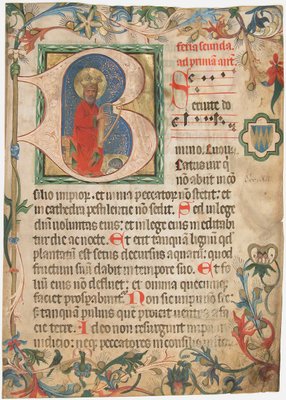 feria secunda.
ad primā ant
Seruite do
mino. Euou
B
eatus uir q
nō abiit in cō
silio impior. et in uia peccator nō stetit: et
in cathedra pestilencie nō sedit. Sed in lege
dni uoluntas eius: et in lege eius meditabi
tur die ac nocte. Et erit tanquā lignū qd
plantatū est secus decursus aquarū: quod
fructum suū dabit in tempore suo. Et fo
liū eius nō defluet: et omnia quecunqz
faciet prosperabūt. Non sic impii nō sic:
s tanquā puluis quē proicit uentus a fa
cie terre. Ideo non resurgunt impii in
iudicio: neqz peccatores in consilio